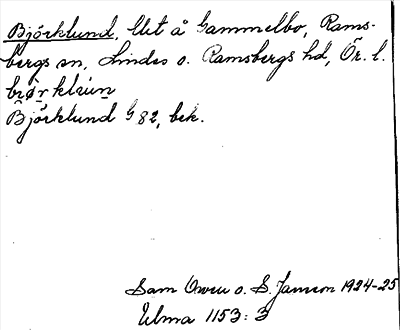 Björklund, lht å Gammelbo, Rams-
bergs sn, Lindes o. Ramsbergs hd, Ör. l.
Björklund G 82, bek.
Sam Owen o. S. Janson 1924-25
Ulma 1153: 3